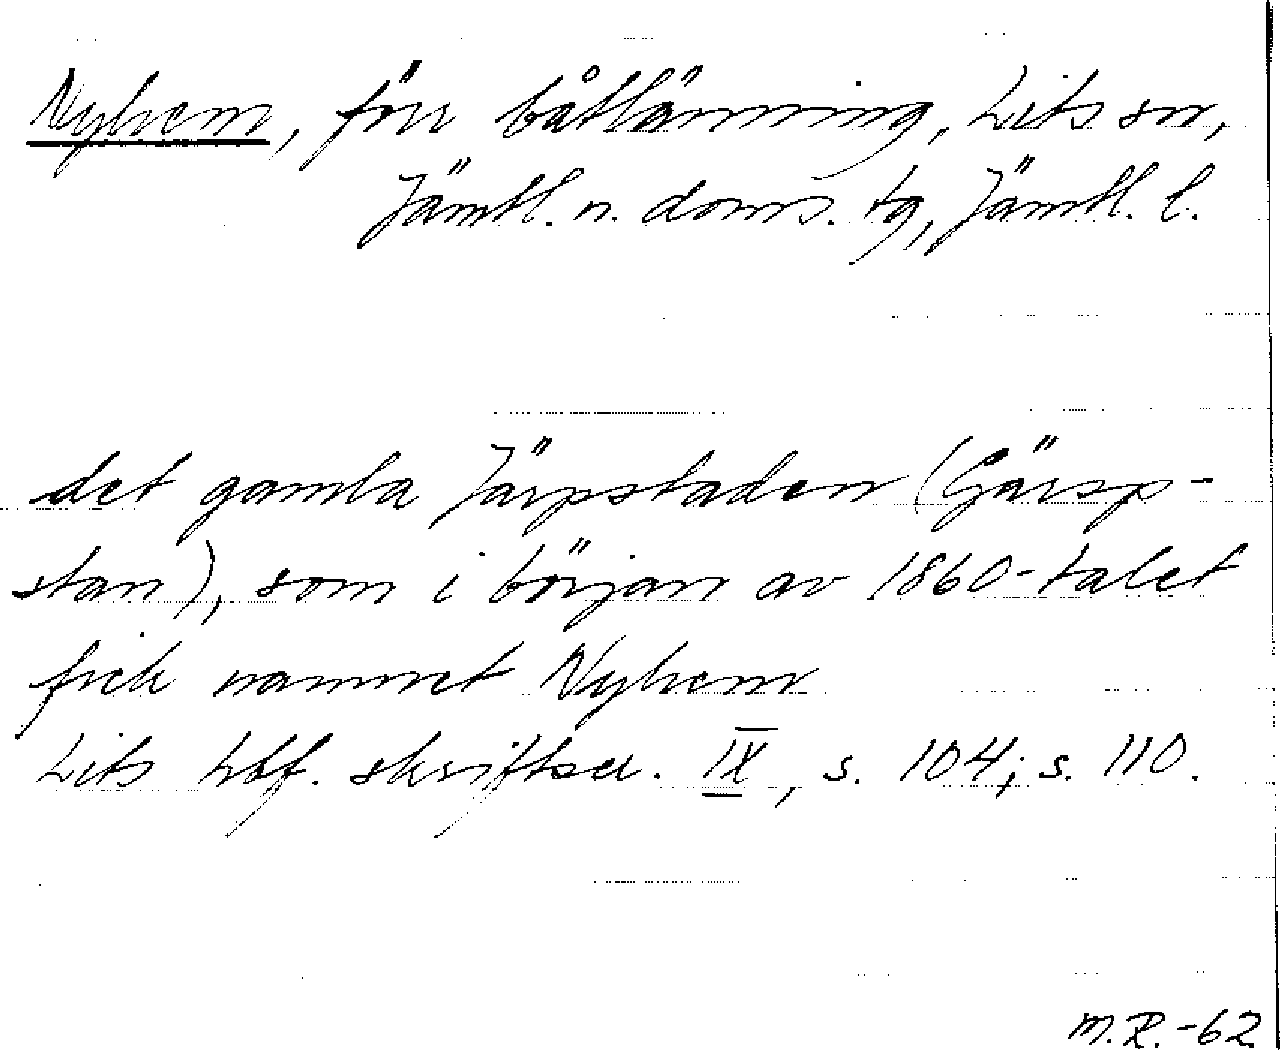 Nyhem, förr båtlänning, Lits sn,
Jämtl. n. doms. tg, Jämtl. l.
det gamla Järpstaden (Gärsp-
stan), som i början av 1860-talet
fick namnet Nyhem
Lits hbf. skriftser. IX, s. 104; s. 110.
M.R.-62